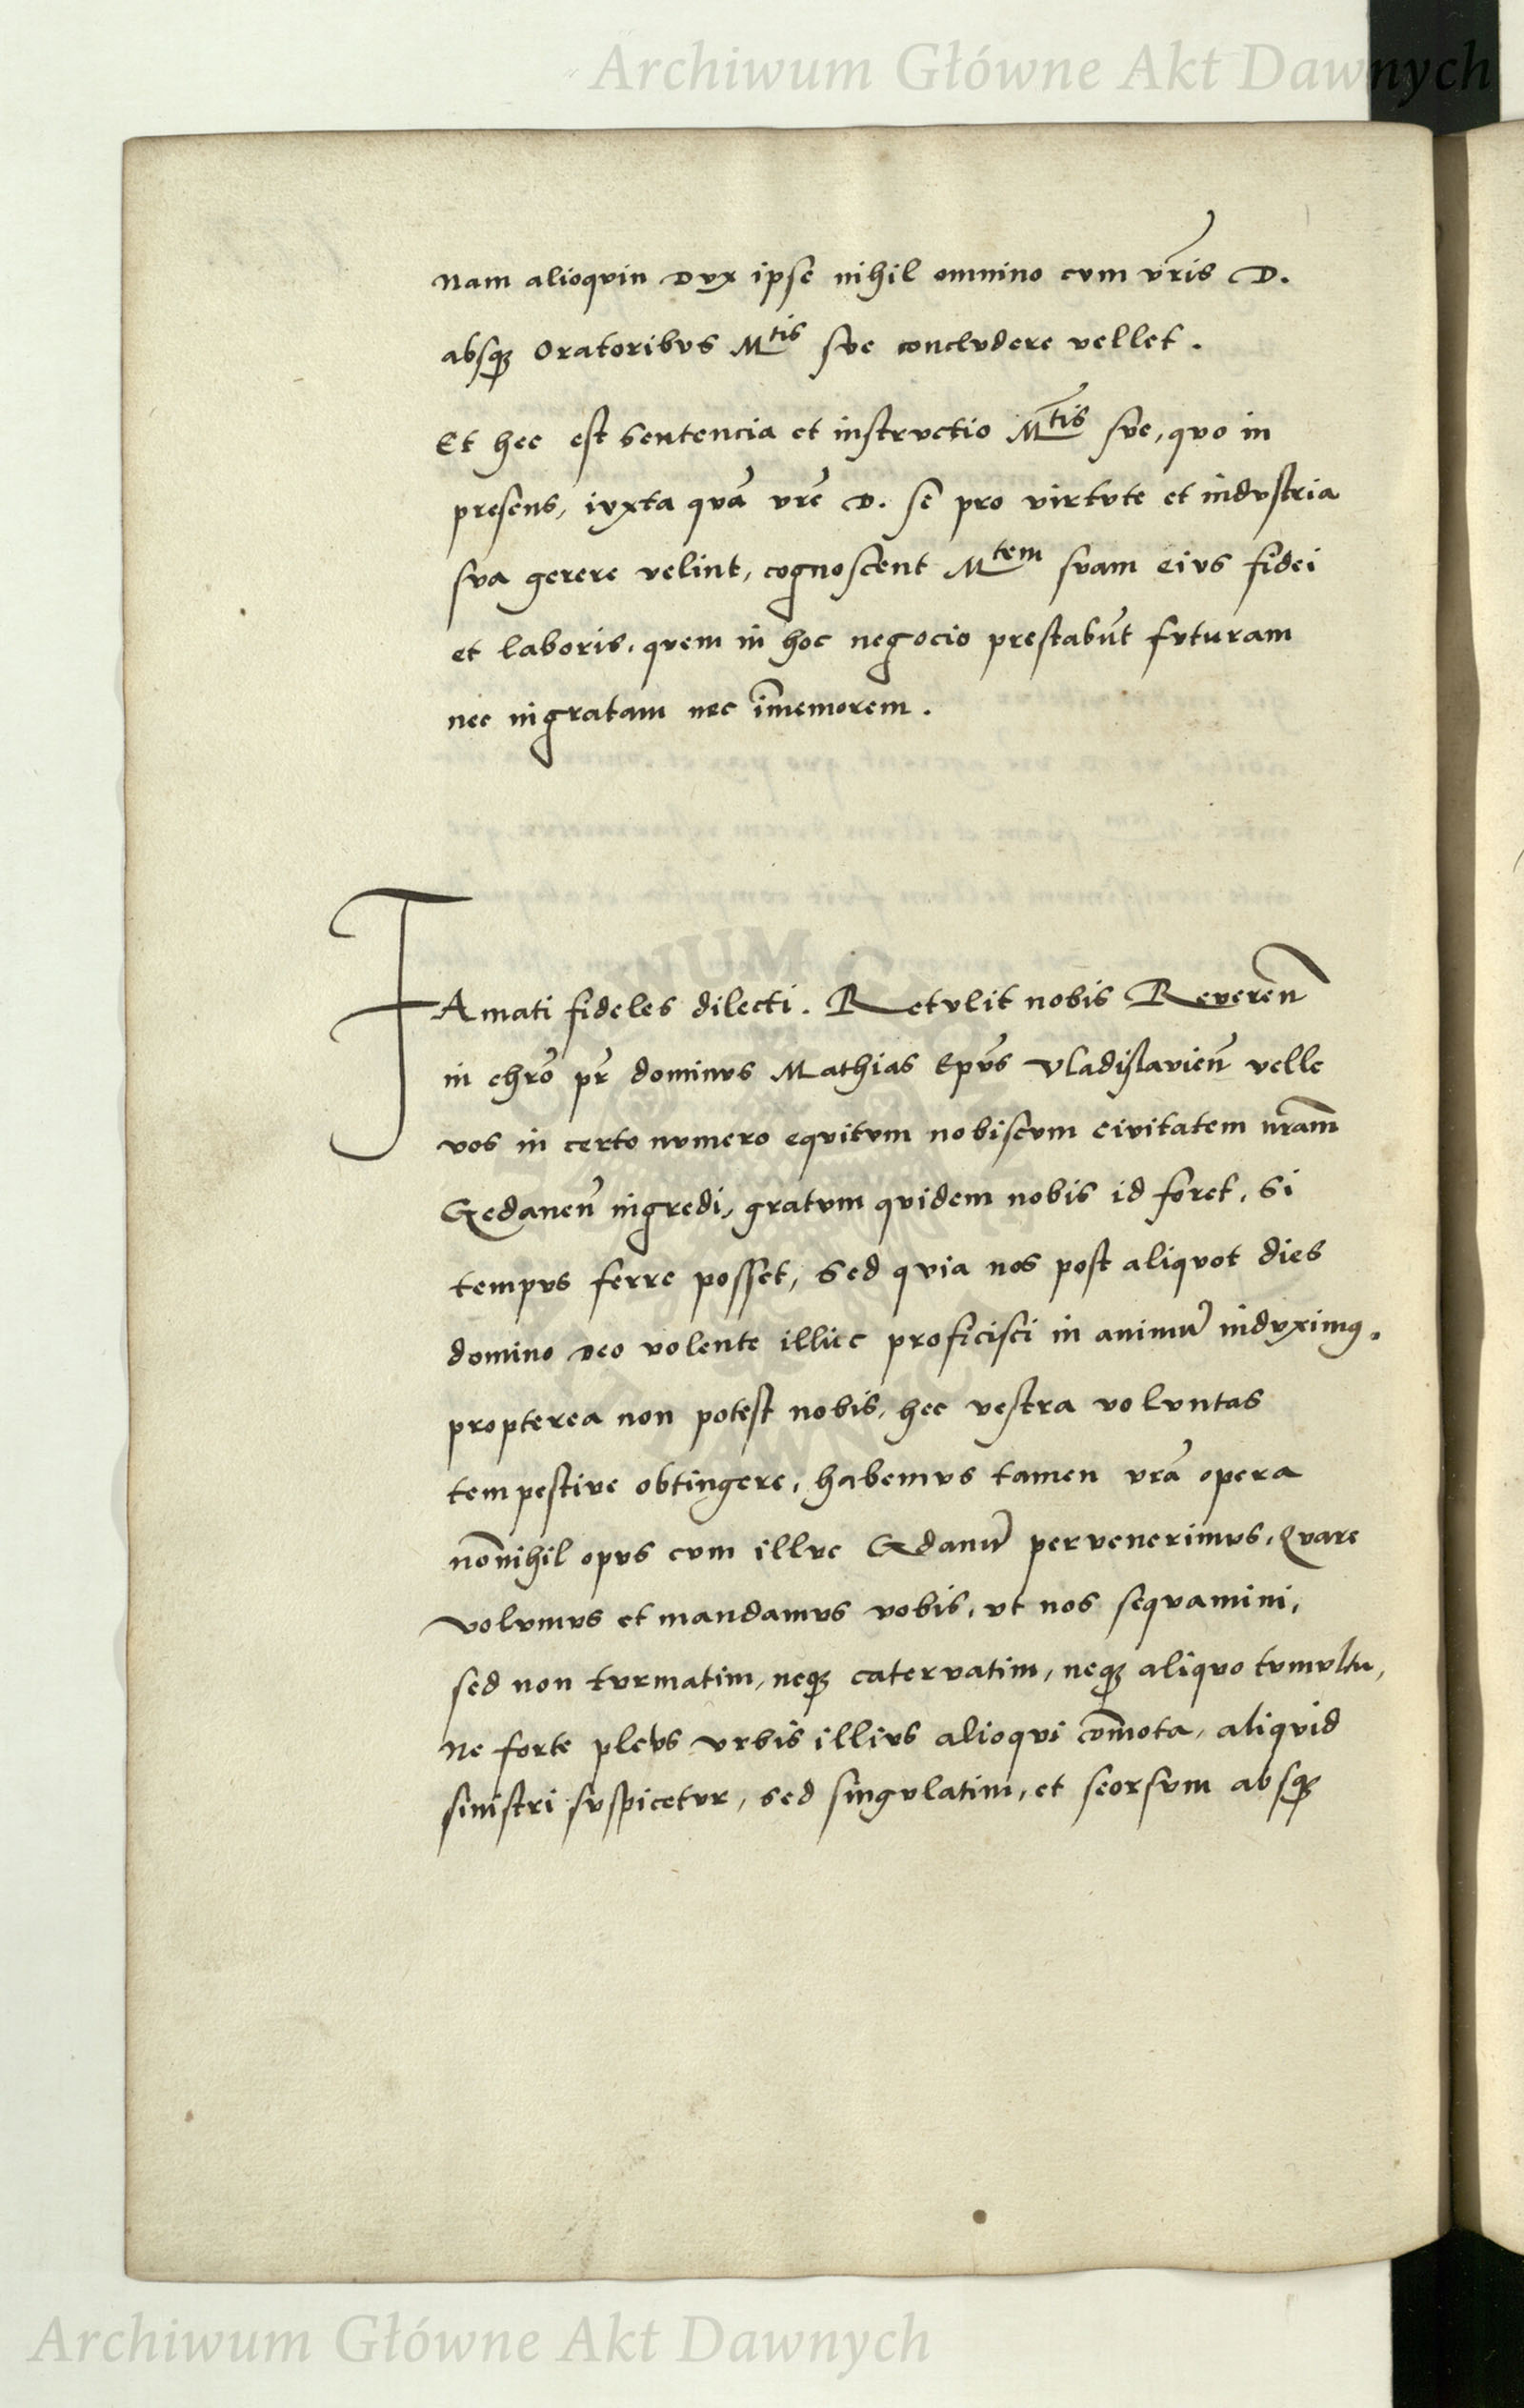 Archiwum Główne Akt Dawnych
Nam alioqvin Dvx ipse nihil omnino cvm vr̃is D.
absq; Oratoribvs Mtis sve conclvdere vellet.
Et hec est sentencia et instrvctio Mtis sve, qvo in
presens, ivxta qvã vrẽ D. se pro virtvte et indvstria
sva gerere velint, cognoscent Mtem svam eivs fidei
et laboris, qvem in hoc negocio prestabṽt fvturam
nec ingratam nec im̃emorem.
FAmati fideles dilecti. Retvlit nobis Revereñ
in chrõ pr̃ dominvs Mathias Epṽs Vladislavieñ velle
vos in certo nvmero eqvitvm nobiscvm civitatem nr̃am
Gedaneñ ingredi, gratvm qvidem nobis id foret, si
tempvs ferre posset, Sed qvia nos post aliqvot dies
domino Deo volente illuc proficisci in animũ indvximus.
propterea non potest nobis, hec vestra volvntas
tempestive obtingere, habemvs tamen vrã opera
noñihil opvs cvm illvc Gdanũ pervenerimvs, Qvare
volvmvs et mandamvs vobis, vt nos seqvamini,
sed non tvrmatim, neq; catervatim, neq; aliqvo tvmvltu,
Ne forte plebs vrbis illivs alioqvi com̃ota, aliqvid
sinistri svspicetvr, sed singvlatim, et seorsvm absq;
Archiwum Główne Akt Dawnych